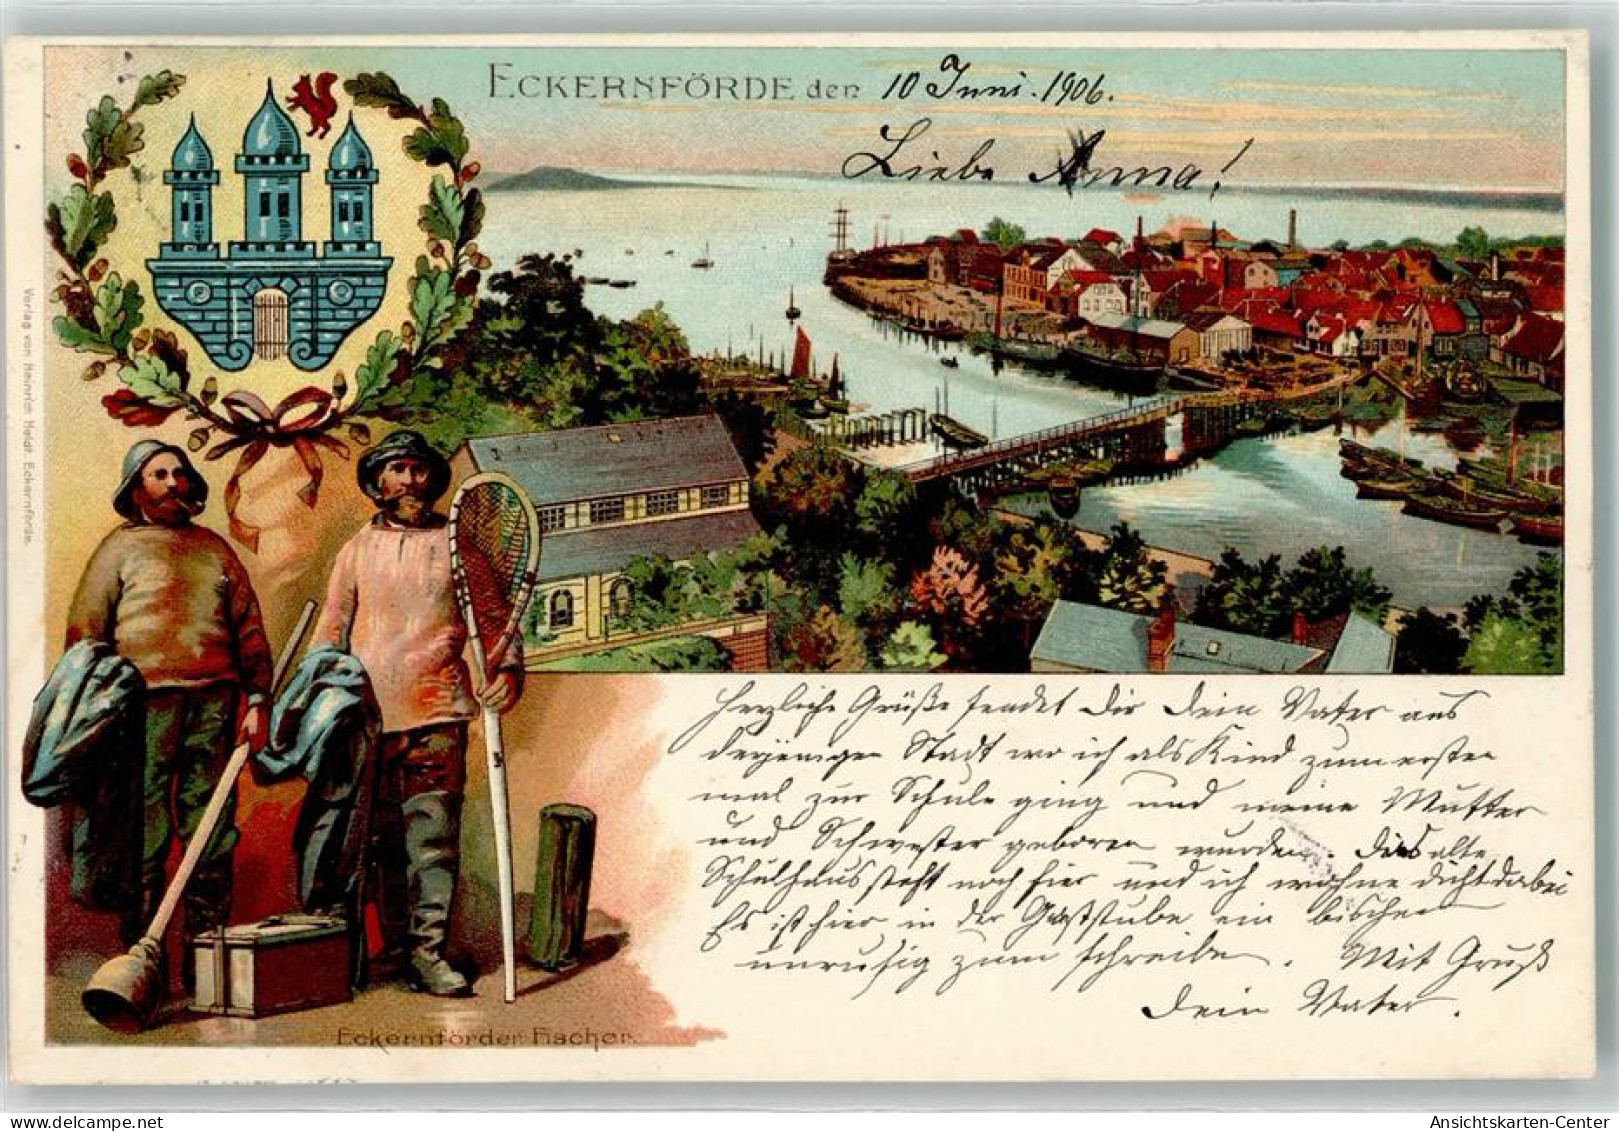 ECKERNFÖRDE den 10 Juni. 1906.
Liebe Anna!
Herzliche Grüße sendet Dir Dein Vater aus
derjenigen Stadt wo ich als Kind zum ersten
mal zur Schule ging und meine Mutter
und Schwester geboren wurden. Das alte
Schulhaus steht noch hier und ich wohne dicht dabei
Es ist hier in der Gaststube ein bischen
unruhig zum schreiben. Mit Gruß
Dein Vater.
Eckernförder Fischer.
Verlag von Heinrich Heldt. Eckernförde.
Ansichtskarten-Center